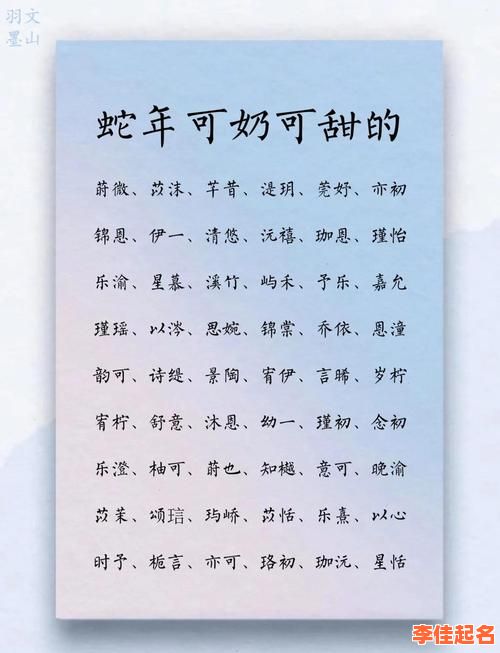 羽文
墨山
蛇年可奶可甜的
蔚微、苡沫、芊昔、湜玥、莞妤、亦初
锦恩、伊一、清悠、沅禧、珈恩、瑾怡
乐渝、星慕、溪竹、屿禾、予乐、嘉允
瑾瑶、以涔、思婉、锦棠、乔依、恩潼
韵可、诗缇、景陶、宥伊、言晞、岁柠
宥柠、舒意、沐恩、幼一、瑾初、念初
乐澄、柚可、蔚也、知樾、意可、晚渝
苡茉、颂琂、玙峤、苡恬、乐熹、以心
时予、栀言、亦可、珞初、珈沅、星恬
李佳起名